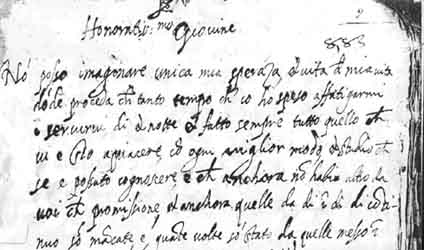 9
Honoratiss:mo Giovine
Nō posso imaginare unica mia speraza & vita d mia vita
dōde proceda ch tanto tempo ch io ho speso affatigarmi
ī servirvi di & notte & fatto sempre tutto quello ch
vi e sto apiacere, cō ogni miglior modo & studio ch
se e possuto cognoscere, e ch anchora nō habia auto da
voi ch promisione & anchora quelle da di ī di di cōti-
nuo sō mācate, e quāte volte sō stato da quelle